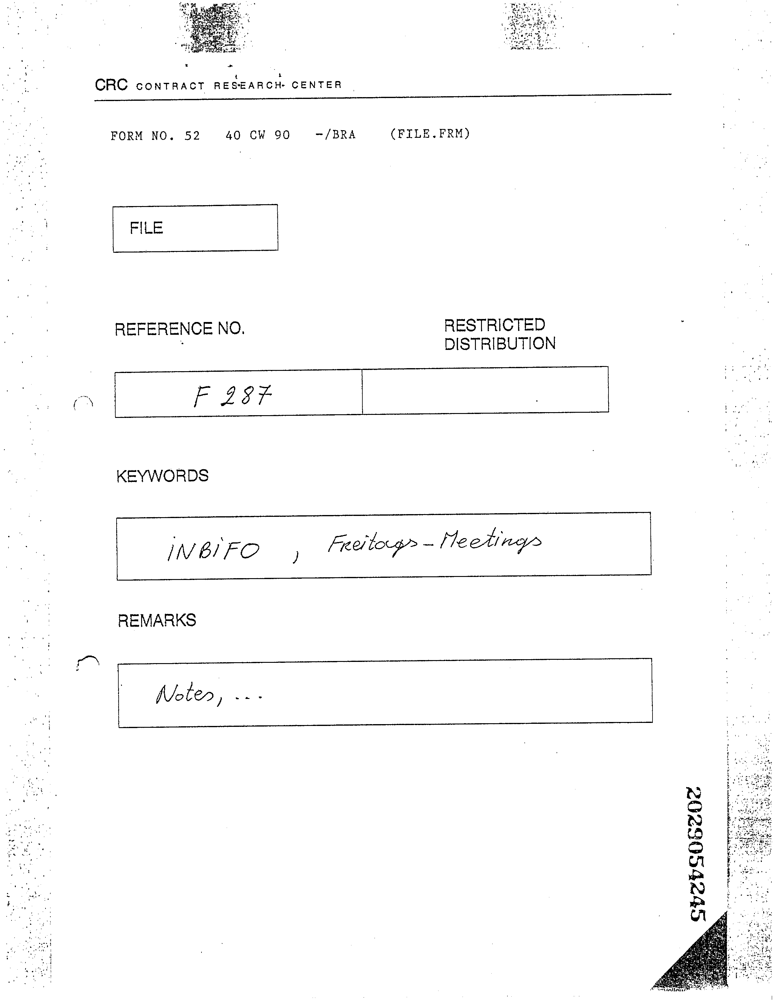 CRC CONTRACT RESEARCH CENTER
FORM NO. 52 40 CW 90 -/BRA (FILE.FRM)
FILE
REFERENCE NO.
RESTRICTED
DISTRIBUTION
F 287
KEYWORDS
INBIFO, Freitags-Meetings
REMARKS
Notes, ...
2029054245